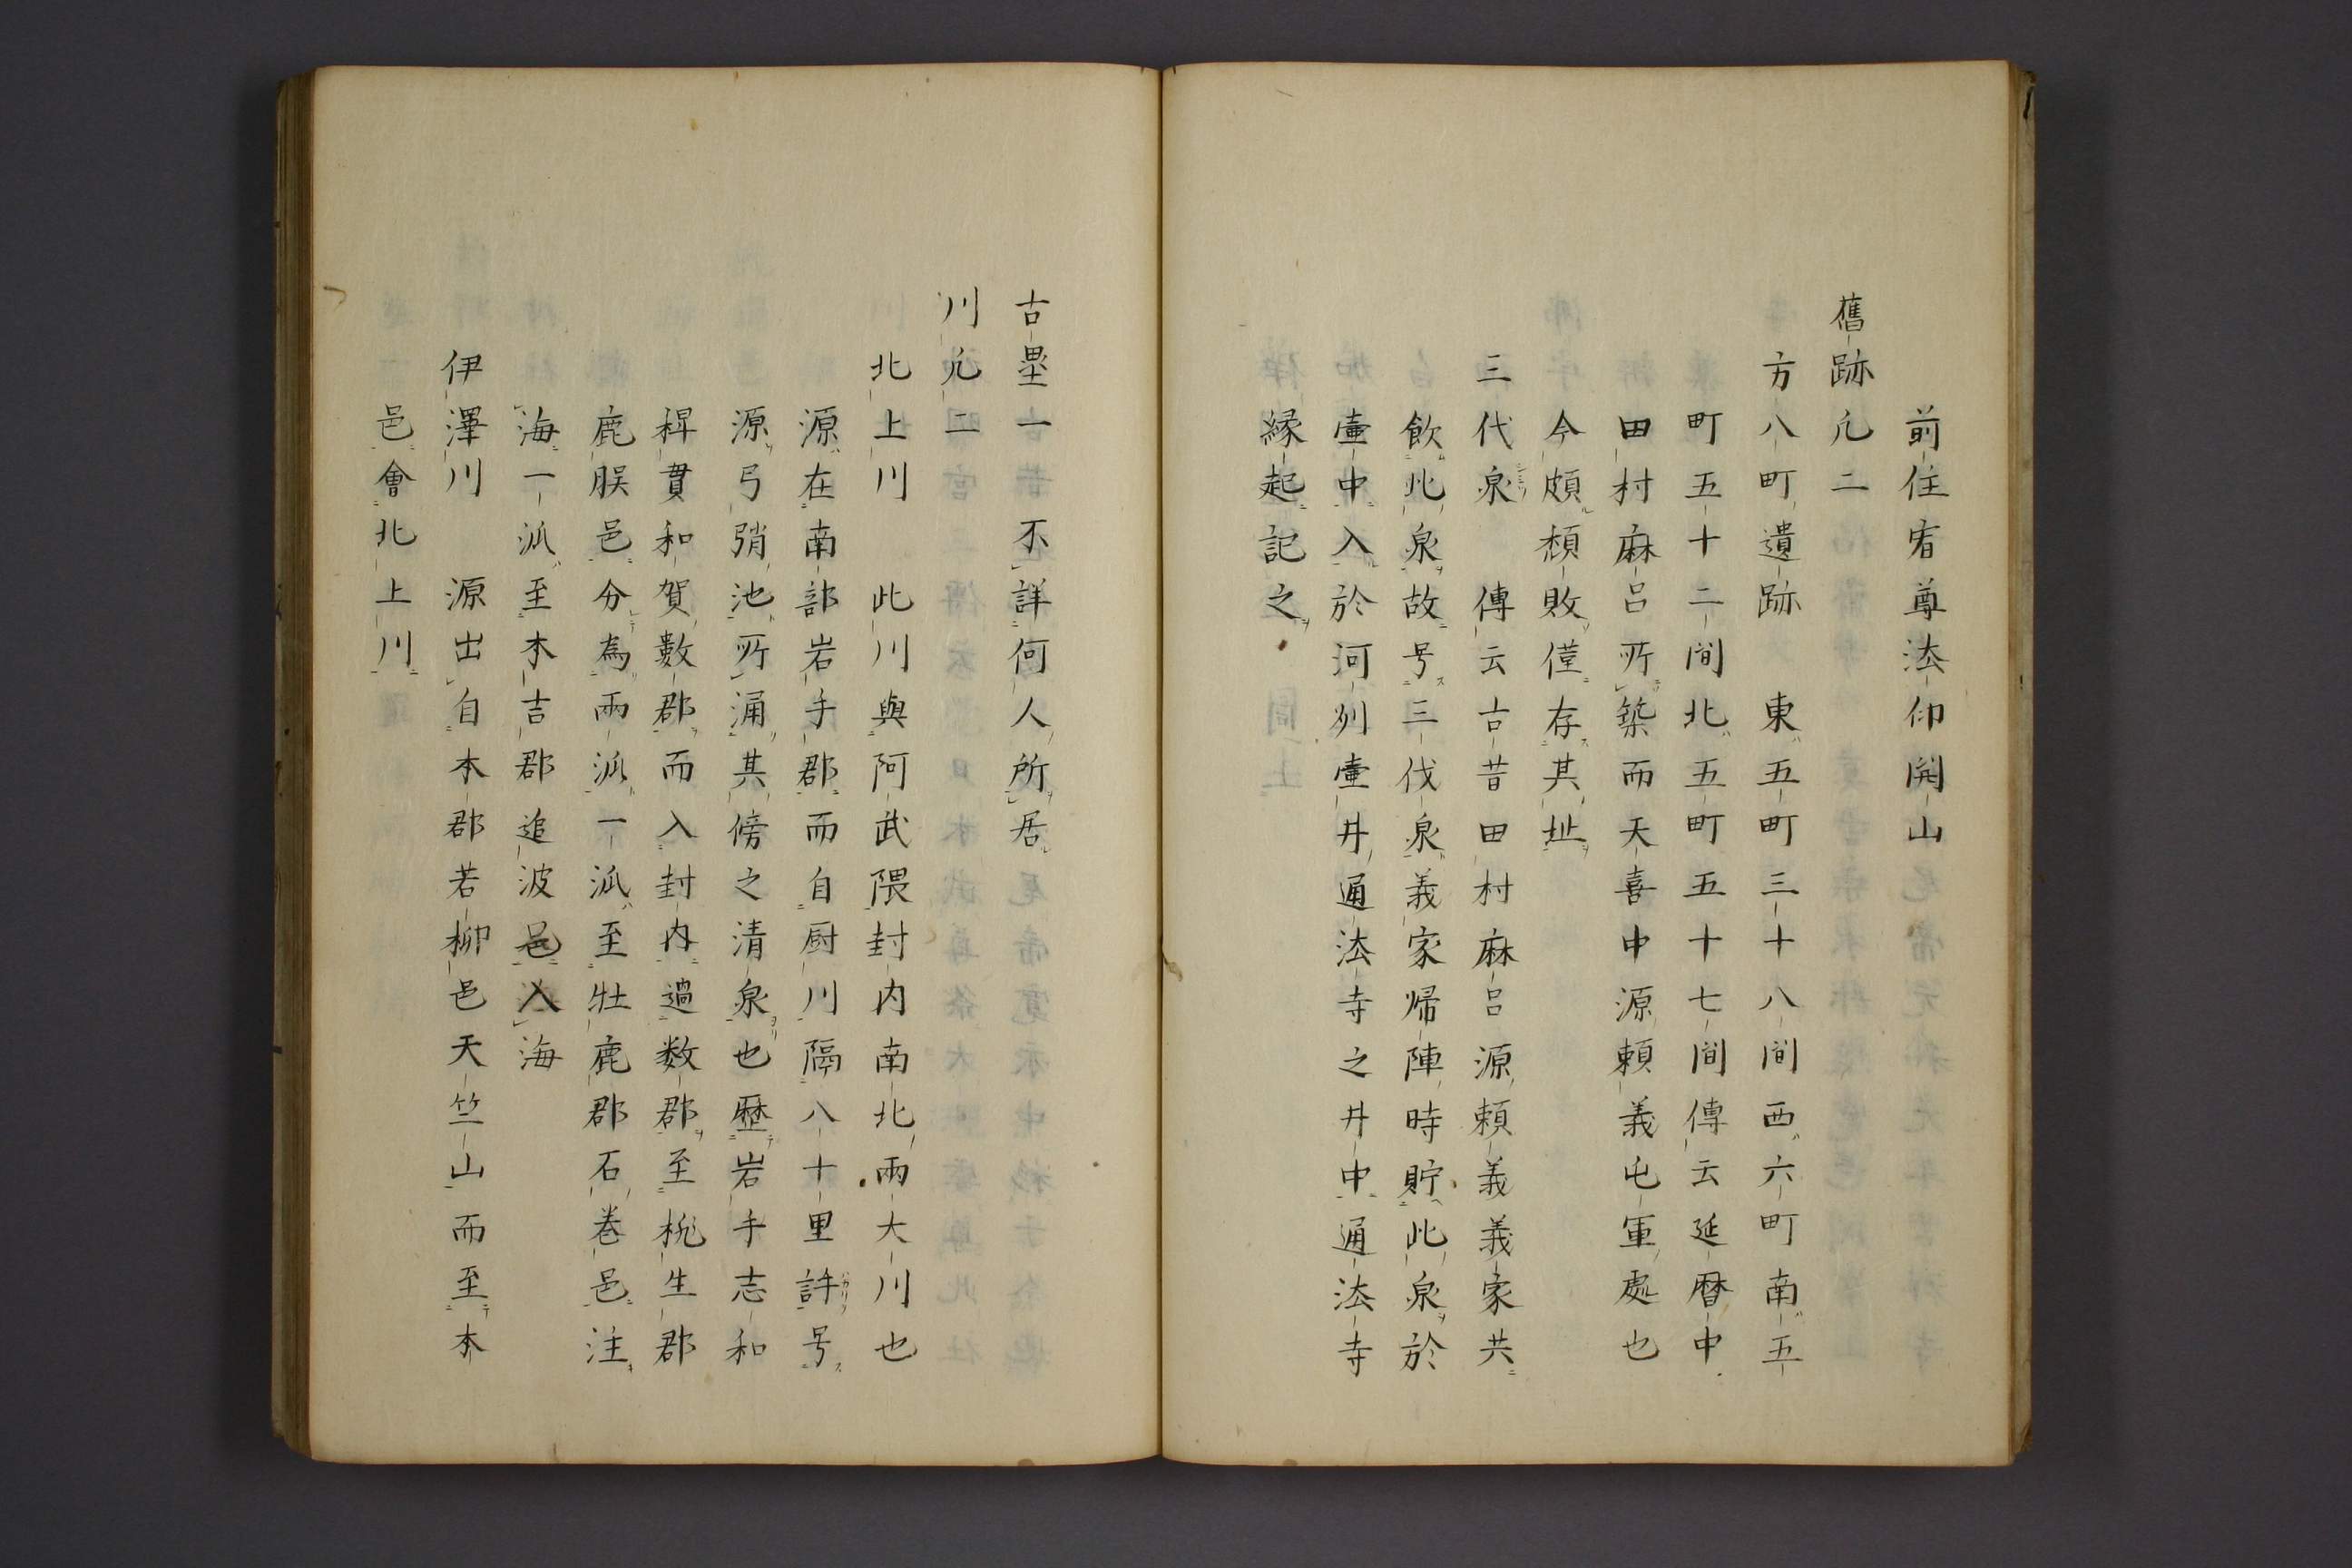 前住宥尊法印開山
舊跡凢二
方八町遺跡　東五町三十八間西六町南五
町五十二間北五町五十七間傳云延暦中
田村麻呂所築而天喜中源頼義屯軍處也
今頗頽敗僅存其址
三代泉　傳云古昔田村麻呂源頼義義家共
飲此泉故号三代泉義家帰陣時貯此泉於
壷中入於河刕壷井通法寺之井中通法寺
縁起記之
古壘一　不詳何人所居
川凢二
北上川　此川與阿武隈封内南北兩大川也
源在南部岩手郡而自厨川隔八十里許号
源弓弭池所涌其傍之清泉也歷岩手志和
稗貫和賀數郡而入封内過数郡至桃生郡
鹿朘邑分為兩派一派至牡鹿郡石巻邑注
海一派至本吉郡追波邑入海
伊澤川　源出自本郡若柳邑天竺山而至本
邑會北上川